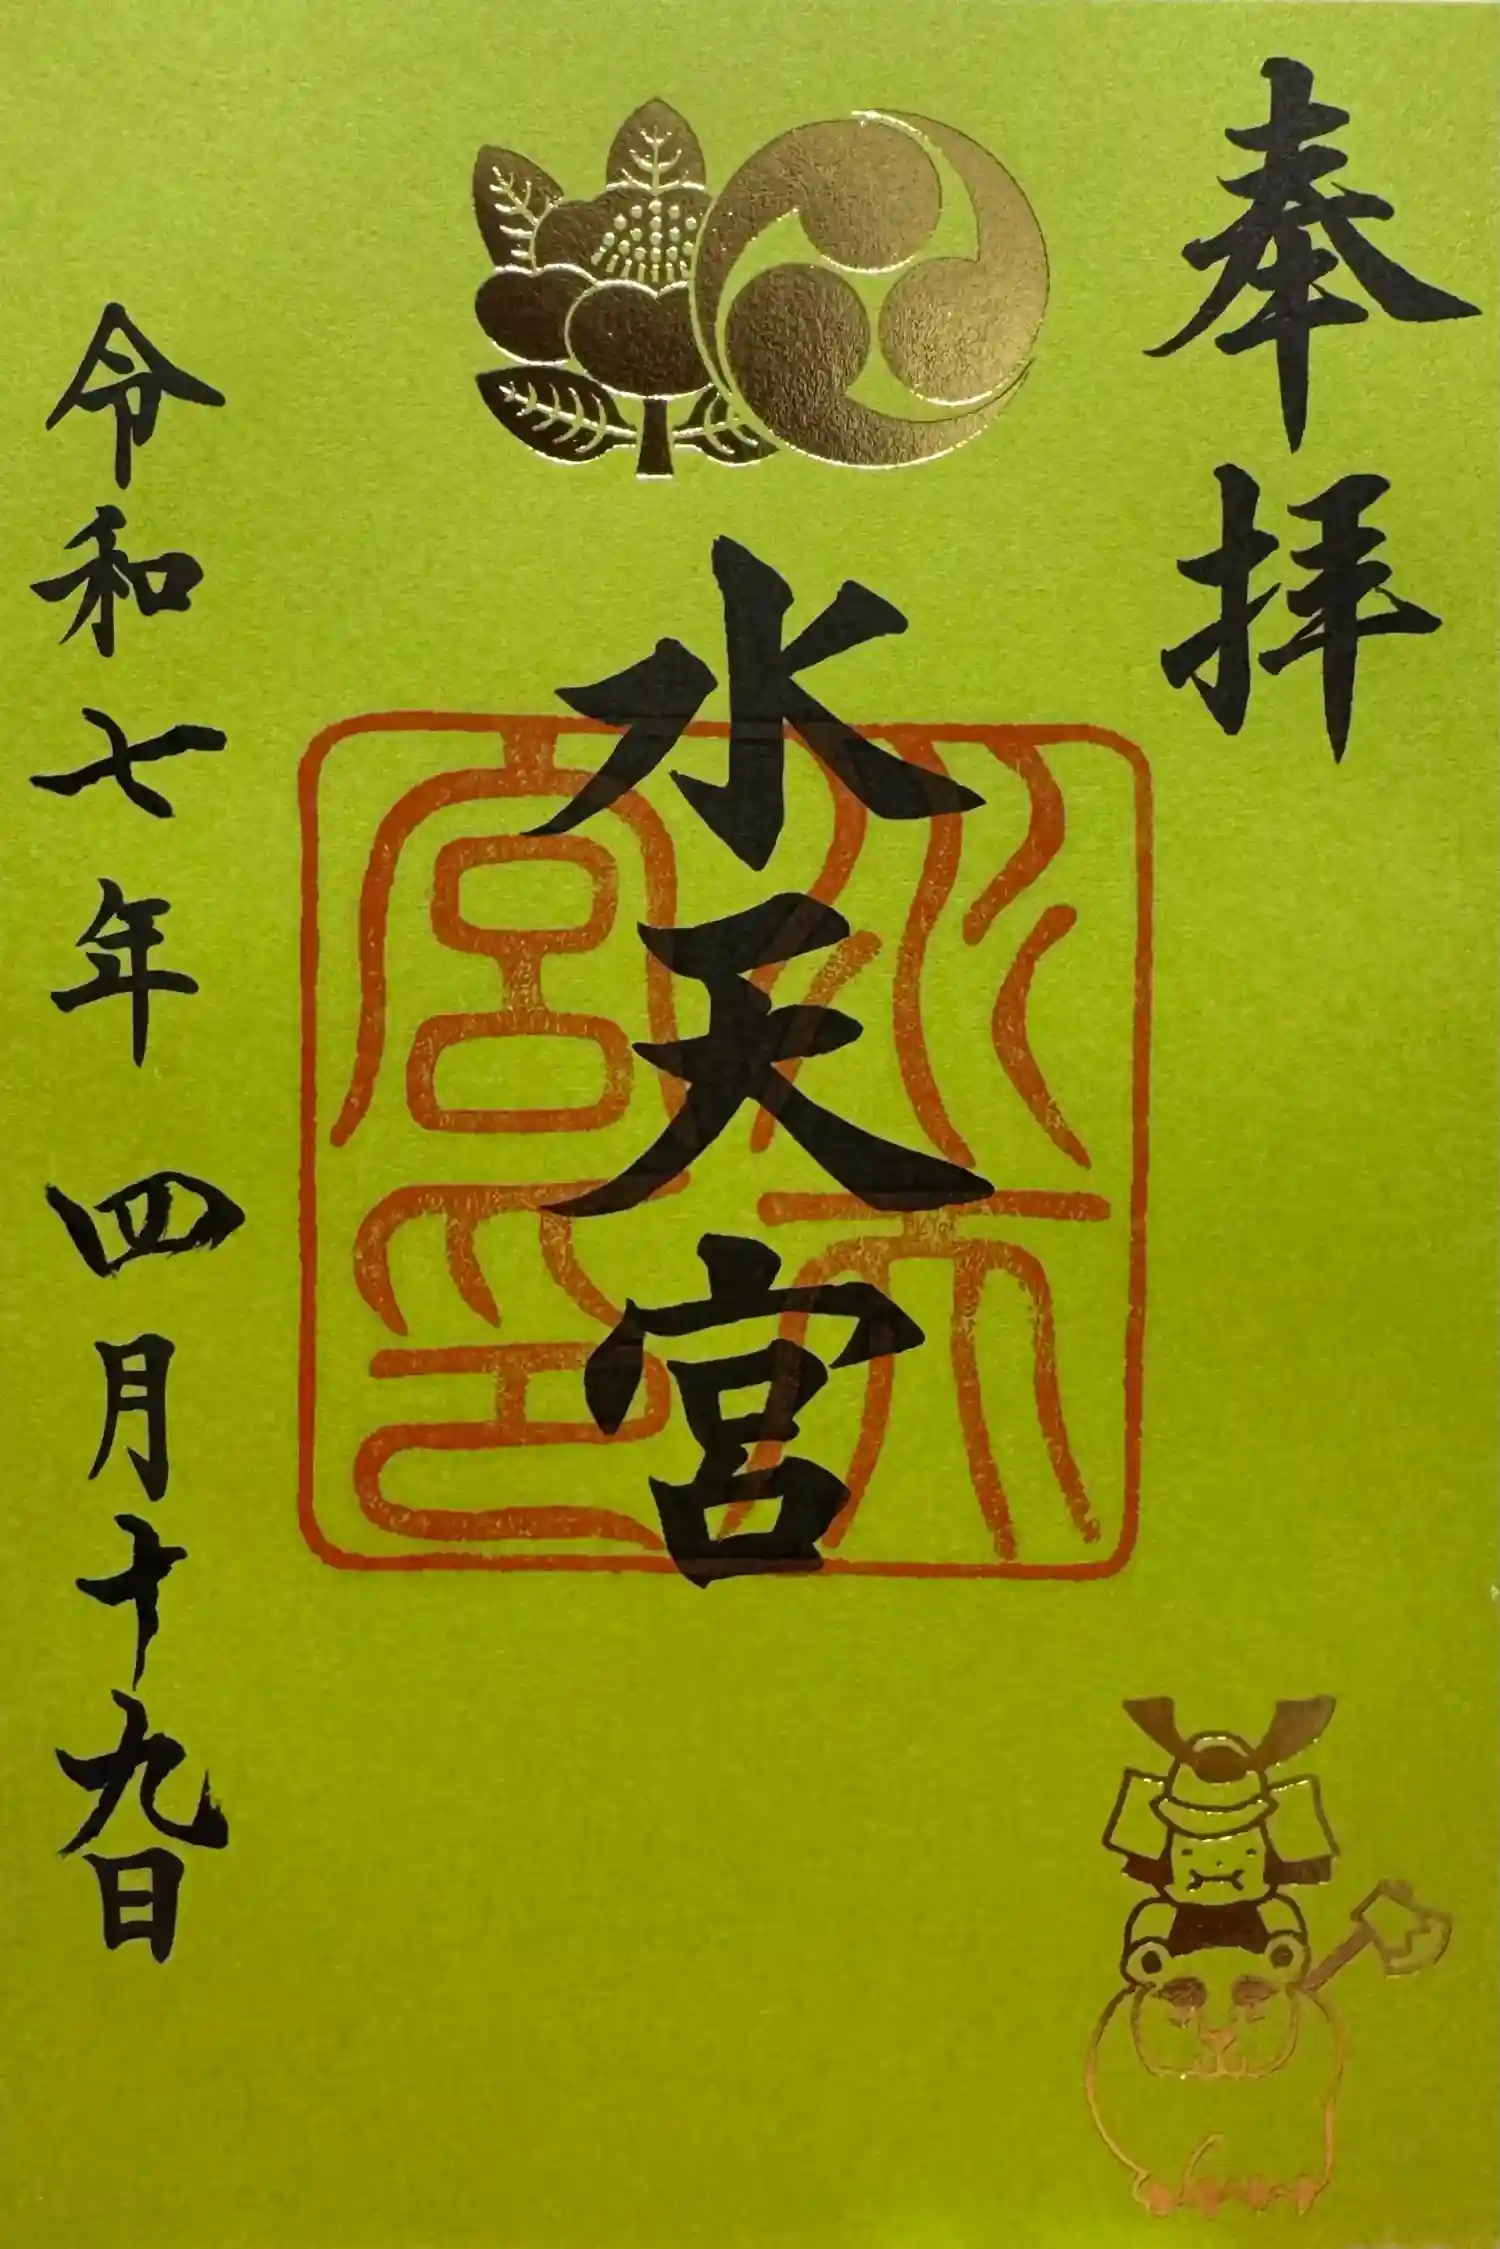 奉拝
水天宮
水天宮印
令和七年四月十九日